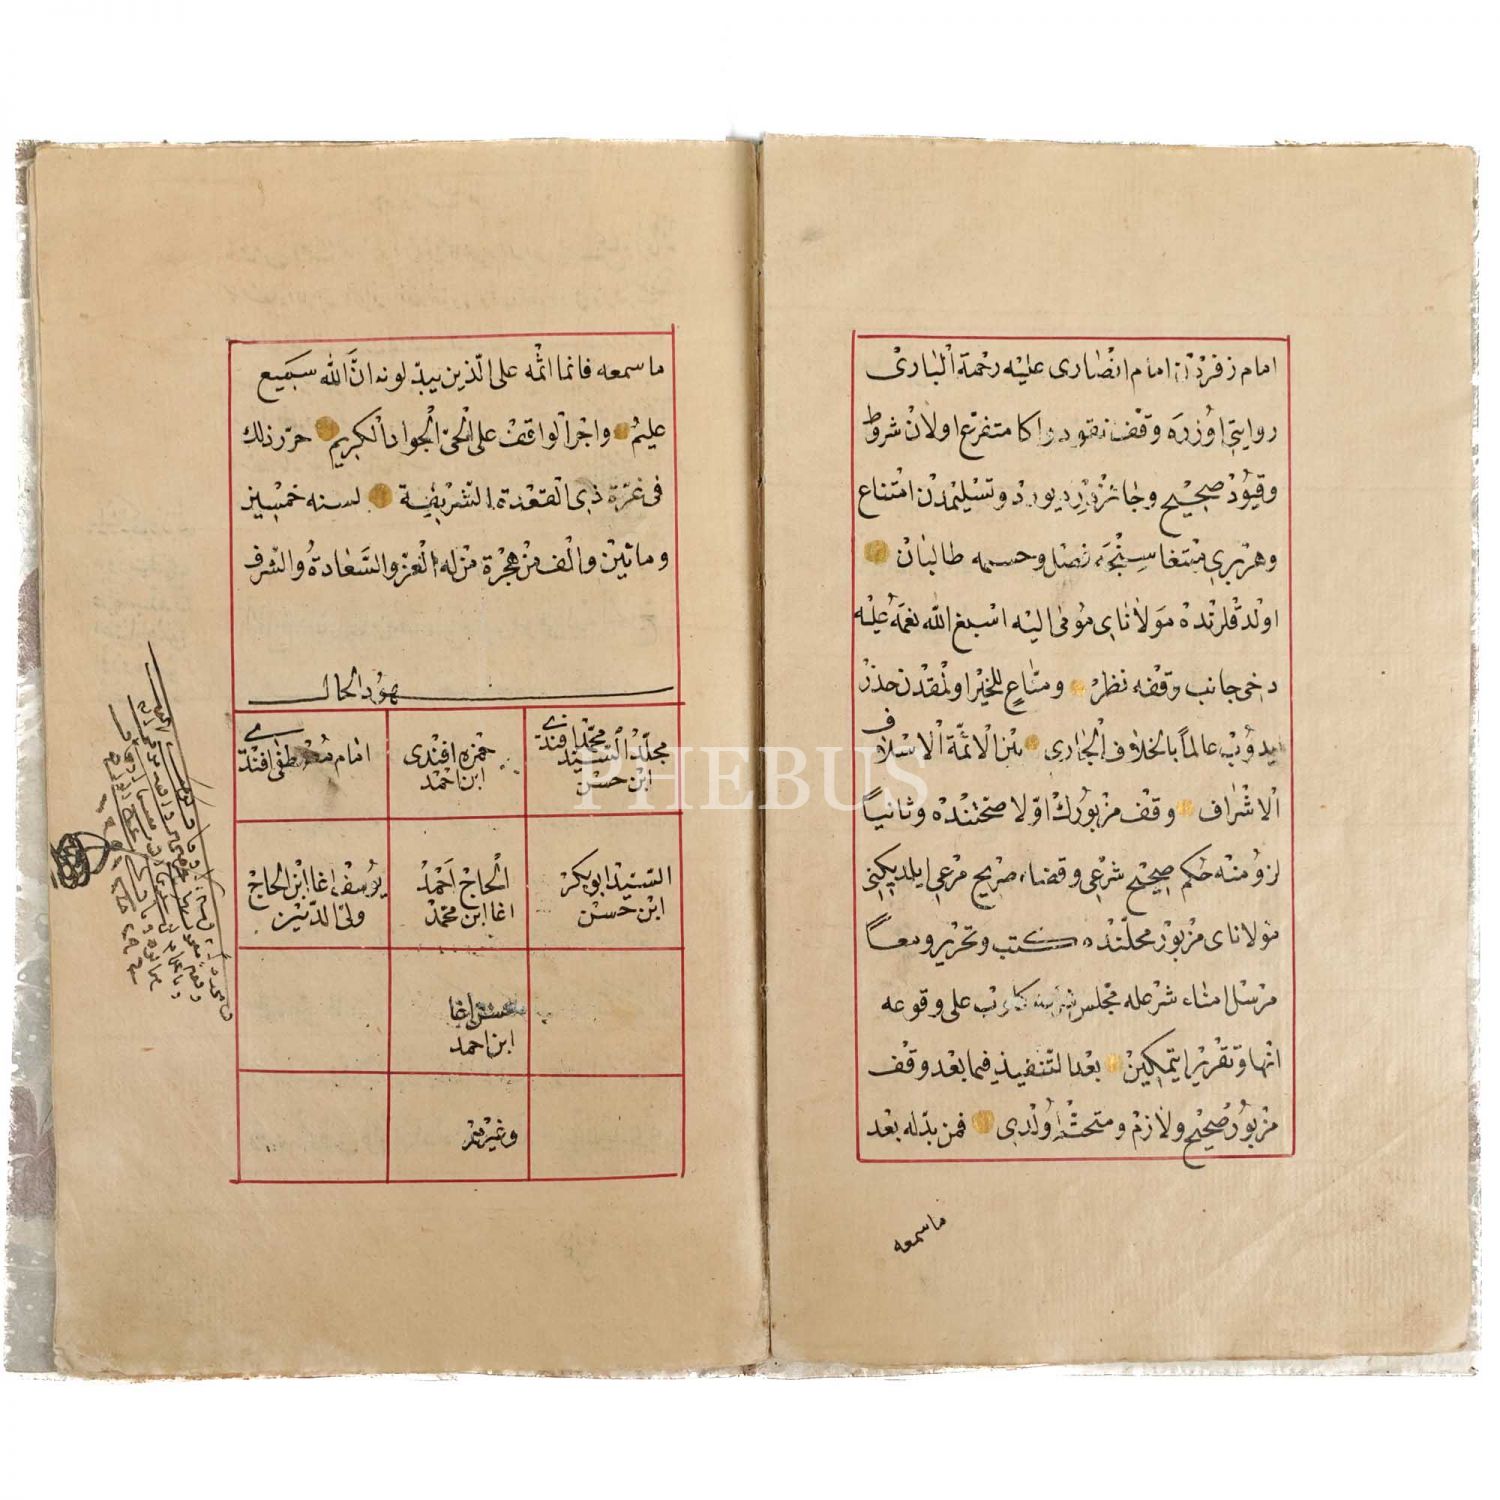 امام زفردن امام انصارى عليه رحمة البارى
روايتى اوزره وقف نقود واكا متفرع اولان شروط
وقيود صحيح وجائزدر ديورد وتسليمدن امتناع
وهربرى مبتغاسنجه فصل وحسمه طالبان
اولدقلرنده مولاناى مومى اليه اسبغ الله نعمه عليه
دخى جانب وقفه نظر ومناع للخير اولمقدن حذر
ايدوب عالما بالخلاف الجارى بين الائمة الاسلاف
الاشراف وقف مزبورك اولا صحتنده وثانيا
لزومنه حكم صحيح شرعى وقضاء صريح مرعى ايلديكنى
مولاناى مزبور محلنده كتب وتحرير ومعا
مرسل امناء شرعله مجلس شرعه كلوب على وقوعه
انها وتقرير ايتمكين بعد التنفيذ فيما بعد وقف
مزبور صحيح ولازم ومتحتم اولدى فمن بدله بعد
ماسمعه
ما سمعه فانما اثمه على الذين يبدلونه ان الله سميع
عليم واجر الواقف على الحى الجواد الكريم حرر ذلك
فى غرة ذى القعدة الشريفة لسنه خمسين
ومائتين والف من هجرة من له العز والسعادة والشرف
شهود الحال
محمد افندى
مجلد السيد
ابن حسن
حمزه افندى
ابن احمد
امام مصطفى افندى
السيد ابوبكر
ابن حسن
الحاج احمد
اغا ابن محمد
يوسف اغا ابن الحاج
ولى الدين
حسن اغا
ابن احمد
وغيرهم
PHEBUS